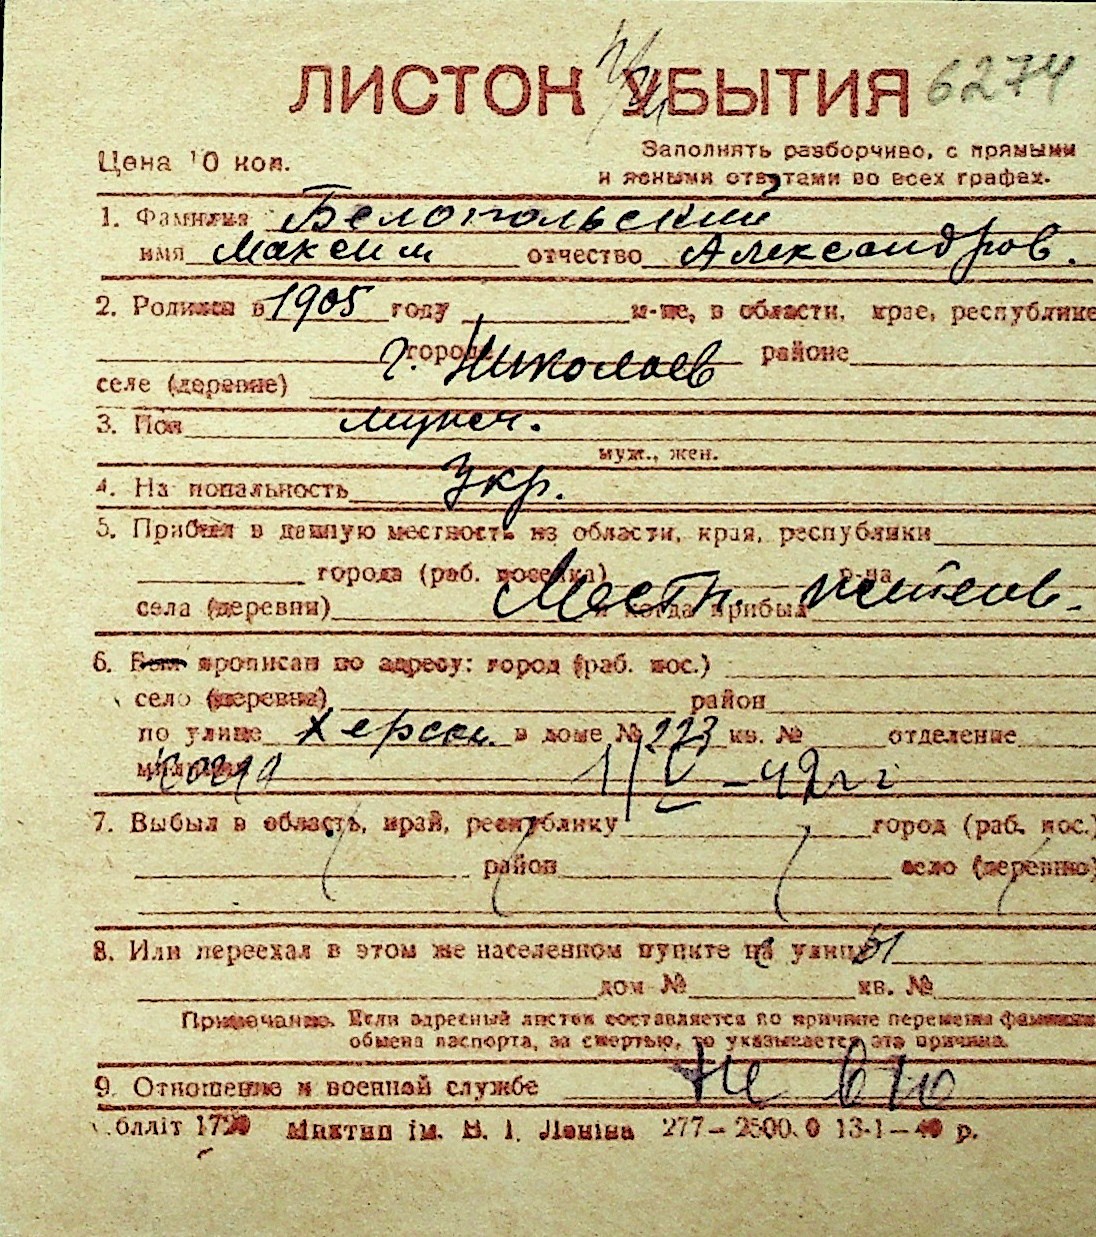 ЛИСТОК УБЫТИЯ 6274
Цена 10 коп.
Заполнять разборчиво, с прямыми
и ясными ответами во всех графах.
1. Фамилия Белопольский
имя Максим отчество Александров.
2. Родился в 1905 году м-це, в области, крае, республике
городе г. Николаев районе
селе (деревне)
3. Пол мужч.
муж., жен.
4. Национальность Укр.
5. Прибыл в данную местность из области, края, республики
города (раб. поселка) р-на
села (деревни) Местн. и когда прибыл житель.
6. Был прописан по адресу: город (раб. пос.)
село (деревня) район
по улице Херсон. в доме № 223 кв. № отделение
милиции 1/V-42 г.
7. Выбыл в область, край, республику город (раб. пос.)
район село (деревню)
8. Или переехал в этом же населенном пункте на улицу
дом № кв. №
Примечание. Если адресный листок составляется по причине перемены фамилии
обмена паспорта, за смертью, то указывается эта причина.
9. Отношение к военной службе
277–2500.0 13-1–40 р.